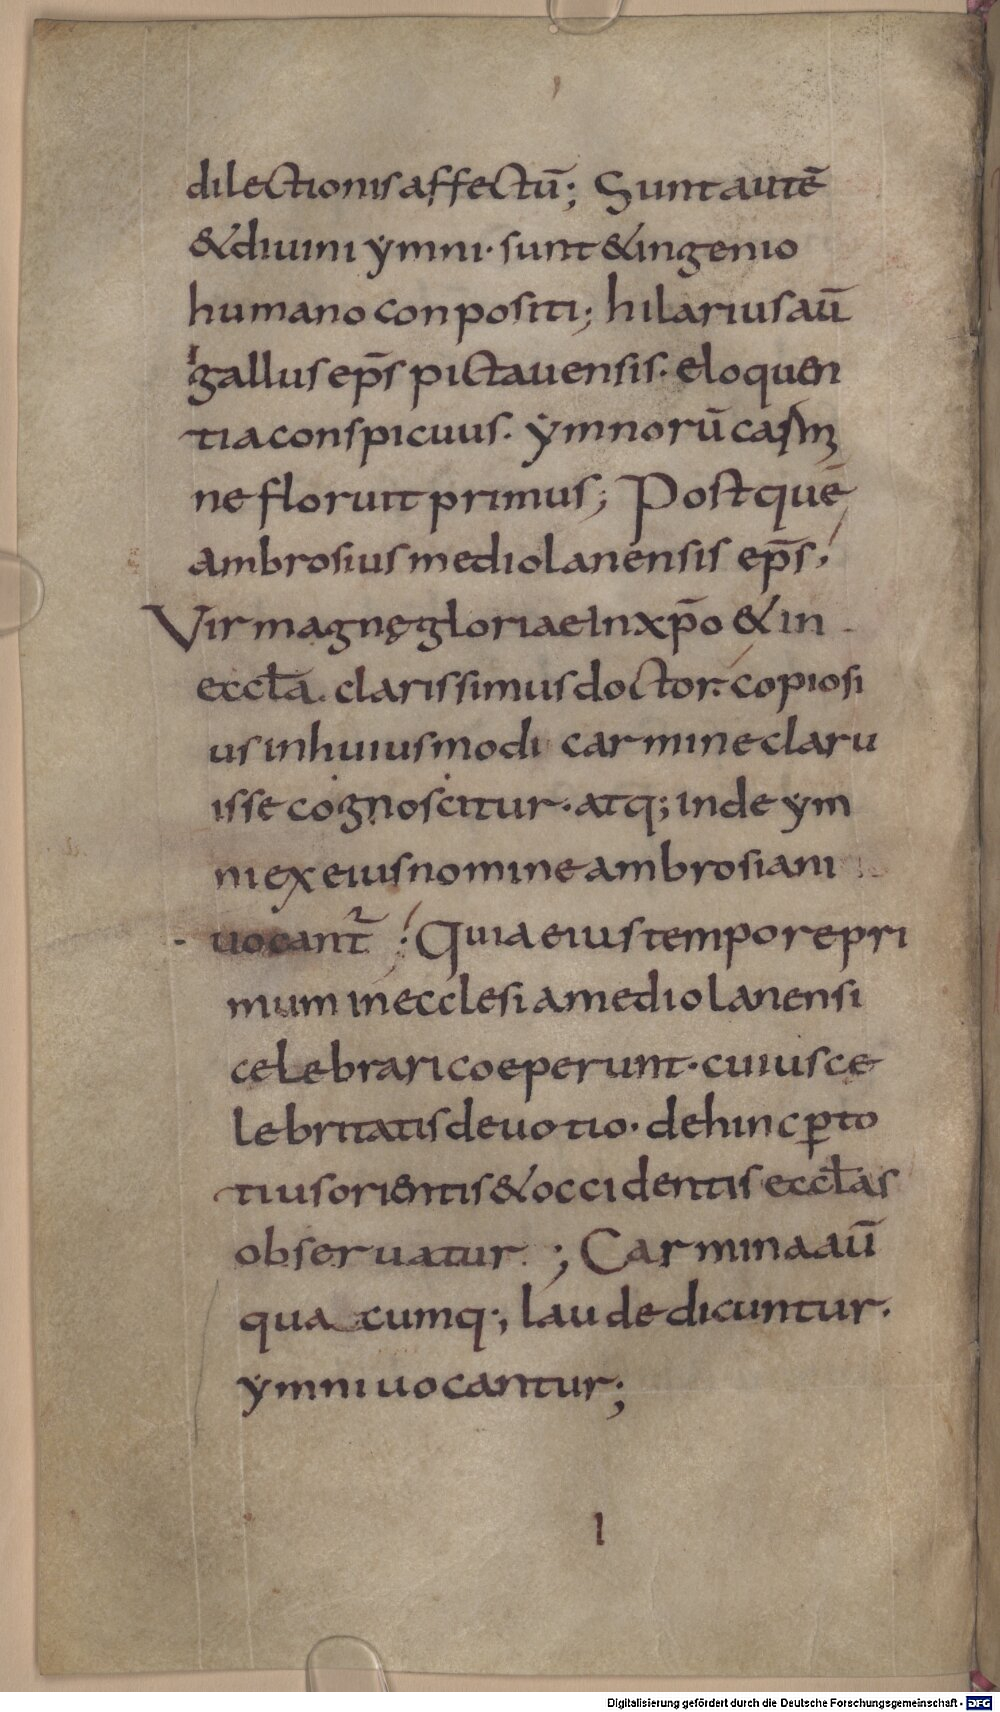 dilectionis affectū; Sunt autē
& diuini ẏmni· sunt & ingenio
humano conpositi; hilarius aū
gallus ep̄s pictauensis· eloquen
tia conspicuus· ẏmnorū carmi
ne floruit primus; Post quē
ambrosius mediolanensis ep̄s;
Vir magnę gloriae in xp̄o & in
eccl̄a· clarissimus doctor· copiosi
us in huiusmodi carmine claru
isse cognoscitur· atq; inde ẏm
ni ex eius nomine ambrosiani
uocant̄; Quia eius tempore pri
mum in ecclesia mediolanensi
celebrari coeperunt· cuius ce
lebritatis deuotio· dehinc p̲ to
tius orientis & occidentis eccl̄as
obseruatur; Carmina aū
quacumq; laude dicuntur·
ẏmni uocantur;
l
Digitalisierung gefördert durch die Deutsche Forschungsgemeinschaft - DFG